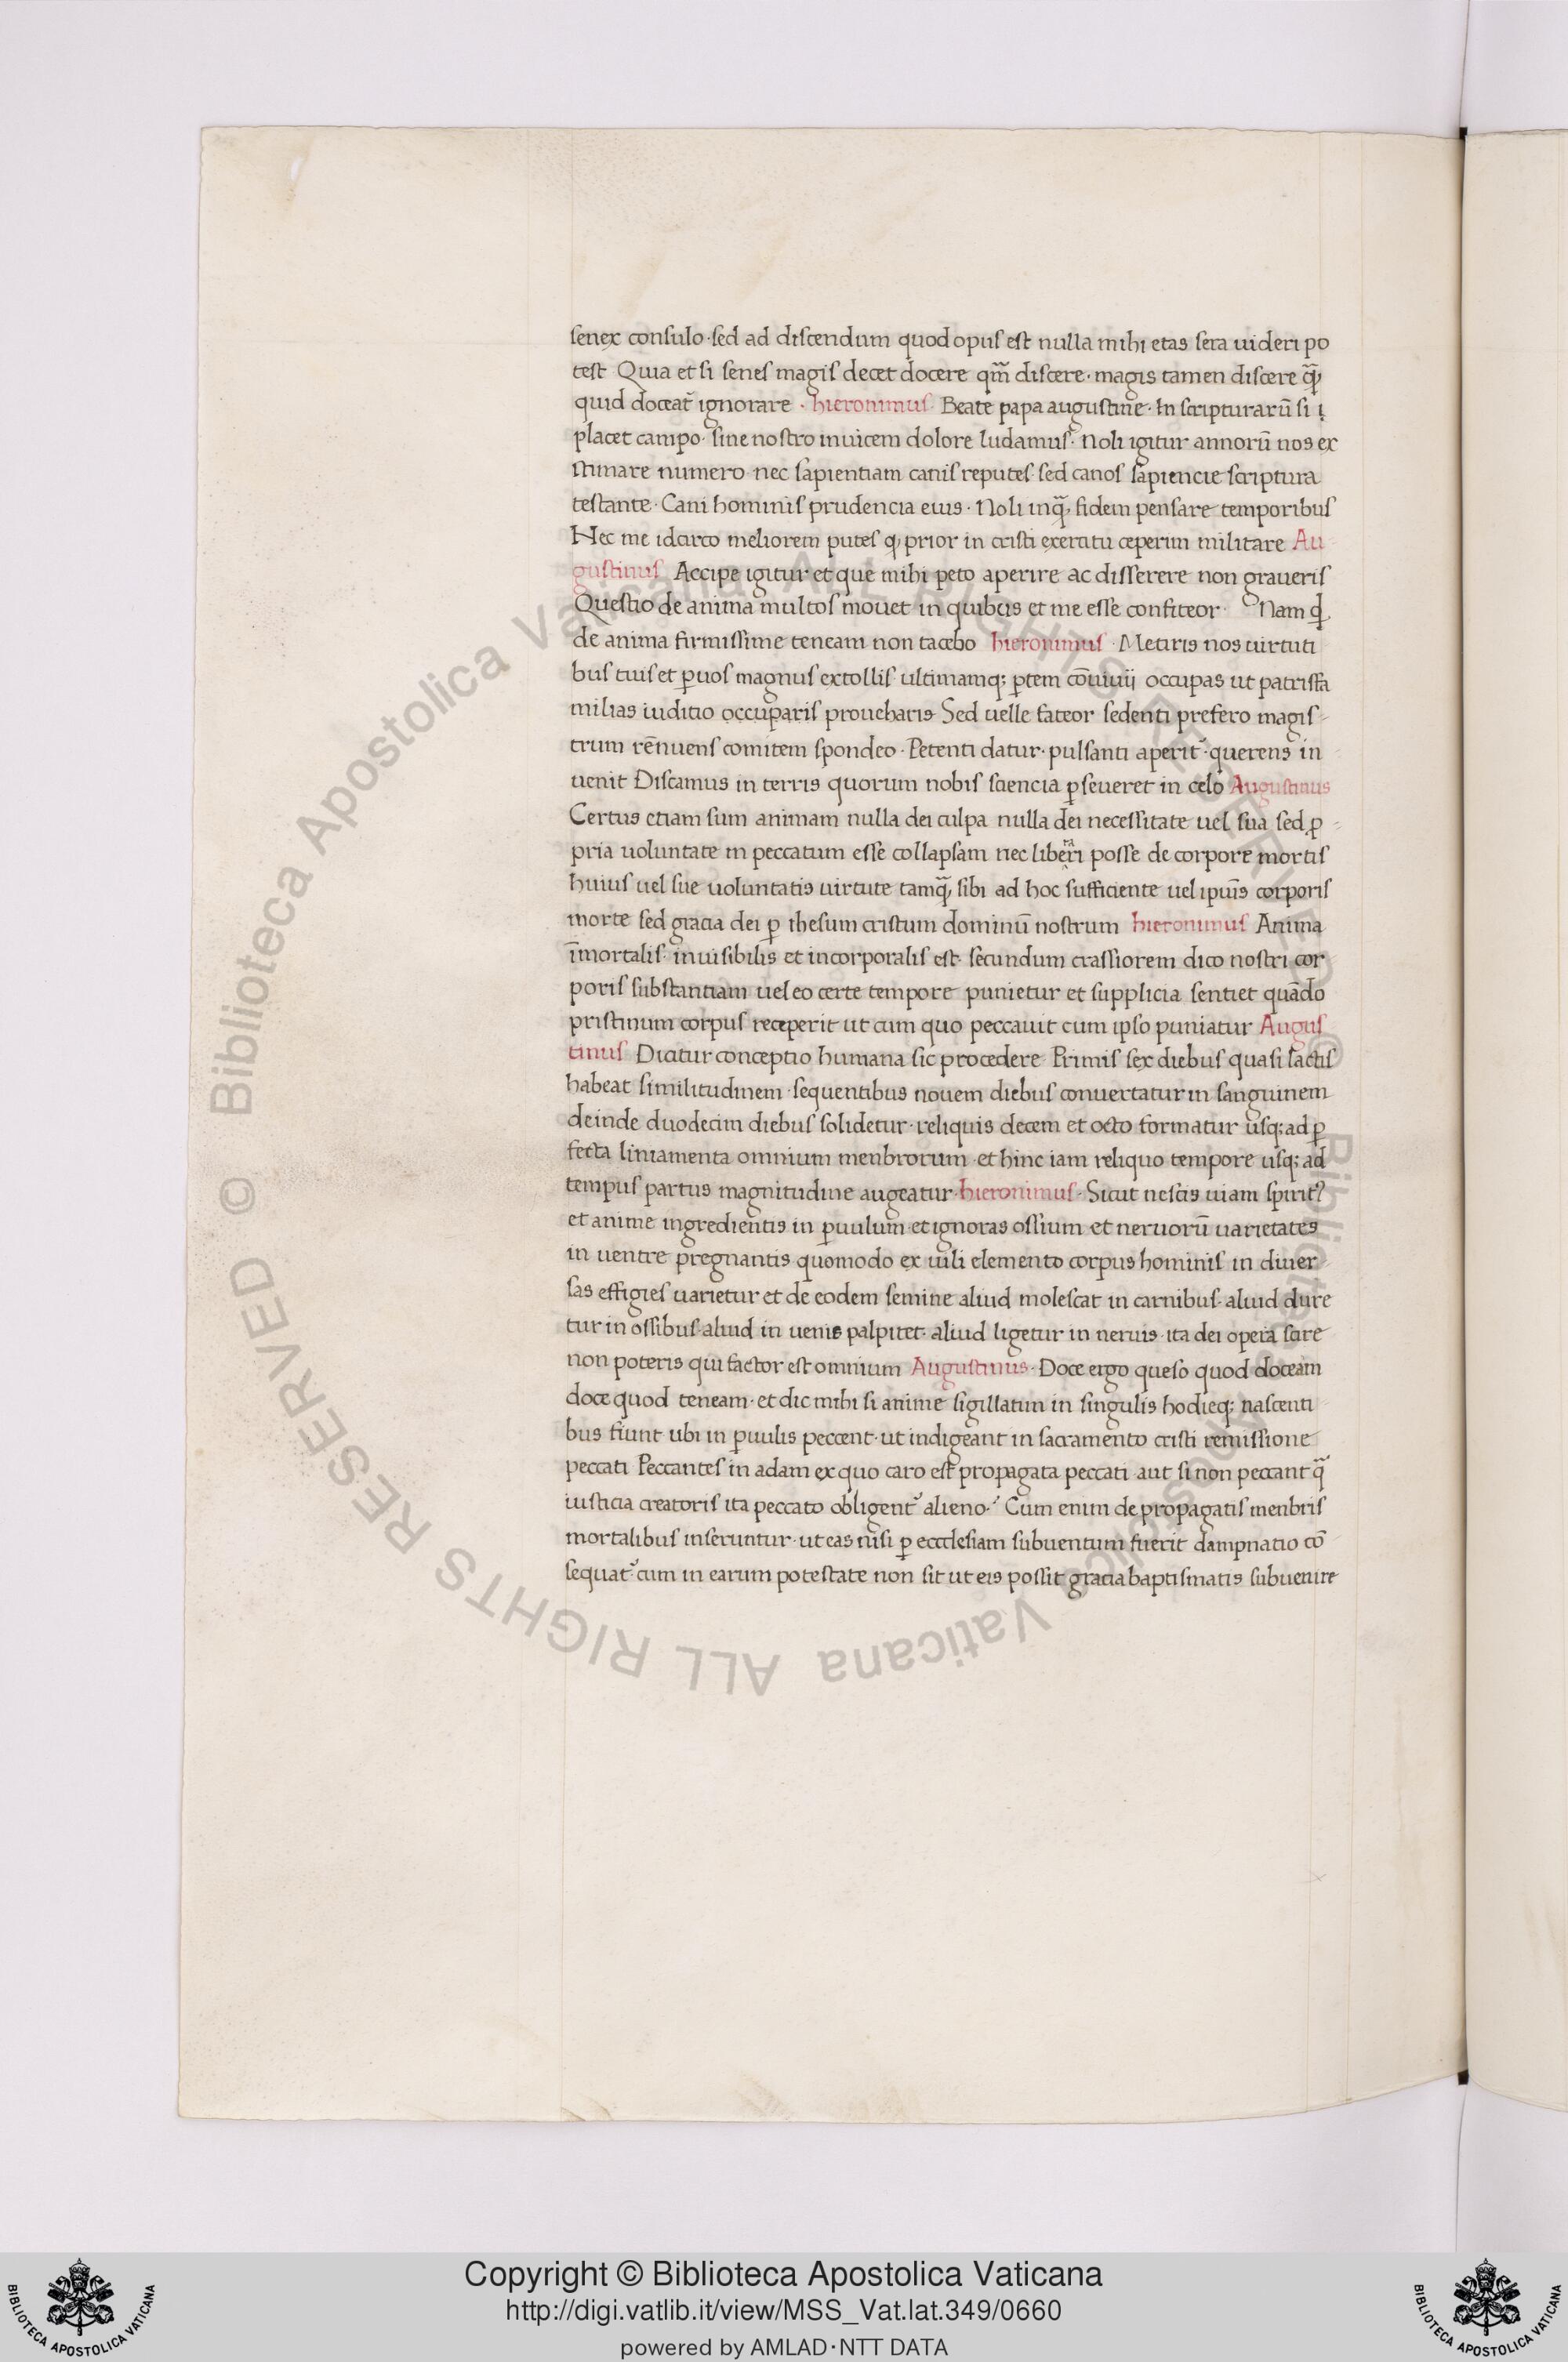 senex consulo· sed ad discendum quod opus est nulla mihi etas sera uideri po
test Quia et si senes magis decet docere qm̃ discere· magis tamen discere q̃
quid doceat̃ ignorare · hieronimus· Beate papa augustine· In scripturarū si i
placet campo· sine nostro inuicem dolore ludamus· Noli igitur annorū nos ex
stimare numero nec sapientiam canis reputes· sed canos sapiencie scriptura
testante· Cani hominis prudencia eius· Noli inq̃, fidem pensare temporibus
Nec me idcirco meliorem putes q, prior in cristi exercitu ceperim militare Au
gustinus Accipe igitur et que mihi peto aperire ac disserere non graueris
Questio de anima multos mouet in quibus et me esse confiteor· Nam qd
de anima firmissime teneam non tacebo hieronimus· Metiris nos uirtuti
bus tuis et ꝑuos magnus extollis ultimamq; ꝑtem cōuiuij occupas ut patrisfa
milias iuditio occuparis proueharis Sed uelle fateor sedenti prefero magis-
trum rēnuens comitem spondeo· Petenti datur· pulsanti aperit̃· querens in
uenit Discamus in terris quorum nobis sciencia ꝑseueret in celo Augustinus
Certus etiam sum animam nulla dei culpa nulla dei necessitate uel sua sed ꝓ-
pria uoluntate in peccatum esse collapsam nec liberari posse de corpore mortis
huius uel sue uoluntatis uirtute tamq̃, sibi ad hoc sufficiente uel ipui̅s corporis
morte sed gracia dei ꝑ ihesum cristum dominū nostrum hieronimus Anima
īmortalis· inuisibilis et incorporalis est· secundum crassiorem dico nostri cor
poris substantiam uel eo certe tempore punietur et supplicia sentiet quādo
pristinum corpus receperit ut cum quo peccauit cum ipso puniatur Augus
tinus Dicitur conceptio humana sic procedere Primis sex diebus quasi lactis
habeat similitudinem· sequentibus nouem diebus conuertatur in sanguinem
deinde duodecim diebus solidetur· reliquis decem et octo formatur usq; ad ꝑ
fecta liniamenta omnium menbrorum· et hinc iam reliquo tempore usq; ad
tempus partus magnitudine augeatur· hieronimus· Sicut nescis uiam spirit9
et anime ingredientis in ꝑuulum et ignoras ossium et neruorū uarietates
in uentre pregnantis quomodo ex uili elemento corpus hominis in diuer-
sas effigies uarietur et de eodem semine aliud molescat in carnibus· aliud dure
tur in ossibus· aliud in uenis palpitet· aliud ligetur in neruis· ita dei opera scire
non poteris qui factor est omnium Augustinus· Doce ergo queso quod doceam
doce quod teneam· et dic mihi si anime sigillatim in singulis hodieq; nascenti
bus fiunt ubi in ꝑuulis peccent· ut indigeant in sacramento cristi remissione
peccati Peccantes in adam ex quo caro est propagata peccati aut si non peccant q̃
iusticia creatoris ita peccato obligent̃ alieno· Cum enim de propagatis menbris
mortalibus inseruntur· ut eas nisi ꝑ eccclesiam subuentum fuerit dampnatio cō
sequat̃ cum in earum potestate non sit ut eis possit gracia baptismatis subuenire
© Biblioteca Apostolica Vaticana ALL RIGHTS RESERVED © Biblioteca Apostolica Vaticana ALL RIGHTS RESERVED
Copyright © Biblioteca Apostolica Vaticana
http://digi.vatlib.it/view/MSS_Vat.lat.349/0660
powered by AMLAD·NTT DATA
BIBLIOTECA APOSTOLICA VATICANA
BIBLIOTECA APOSTOLICA VATICANA